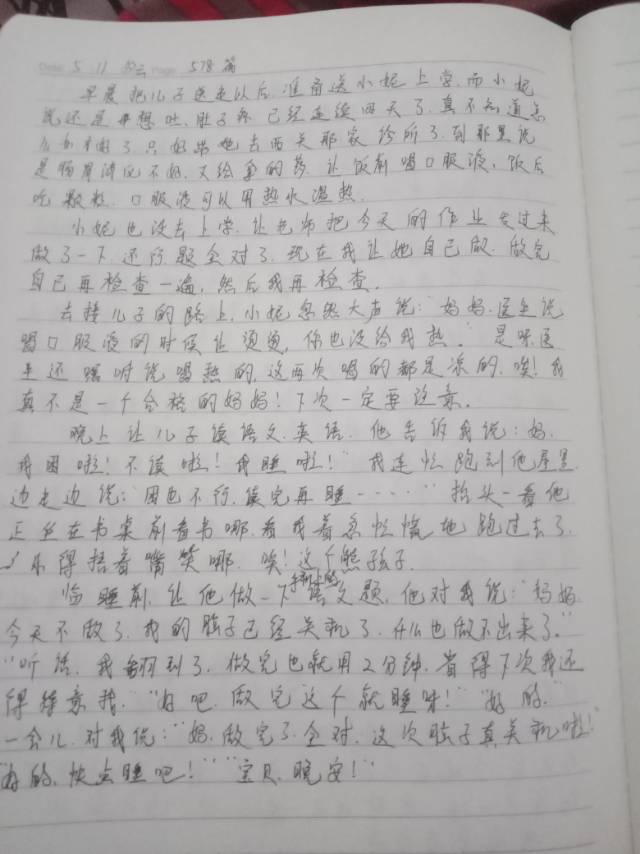 Date 5. 11 Page 578 篇
早晨把儿子送走以后,准备送小妮上学,而小妮
说还是想吐,肚子疼 已经连续四天了,真不知道怎
么办才好了,只好带她去西关那家诊所了,到那里说
是肠胃消化不好,又给拿的药,让饭前喝口服液,饭后
吃颗粒,口服液可以用热水温热。
小妮也没去上学,让老师把今天的作业发过来
做了一下,还行,题全对了,现在我让她自己做,做完
自己再检查一遍,然后我再检查。
去接儿子的路上,小妮忽然大声说:“妈妈,医生说
喝口服液的时候让烫烫,你也没给我热。” 是呀,医
生还嘱咐说喝热的,这两次喝的都是凉的,唉!我
真不是一个合格的妈妈!下次一定要注意。
晚上让儿子读语文、英语,他告诉我说:“妈,
我困啦!不读啦!我睡啦!” 我连忙跑到他屋里
边走边说:“困也不行,读完再睡······” 抬头一看他
正坐在书桌前看书哪,看我着急忙慌地跑过去了,
乐得捂着嘴笑哪,唉!这个熊孩子。
临睡前,让他做一下语文题,他对我说:“妈妈
今天不做了,我的脑子已经关机了,什么也做不出来了。”
“听话,我都问到了,做完也就用2分钟,省得下次我还
得惦记。” “好吧,做完这个就睡呀!” “好的。”
一会儿,对我说:“妈,做完了,全对,这次脑子真关机啦!”
“好的,快去睡吧!” “宝贝,晚安!”